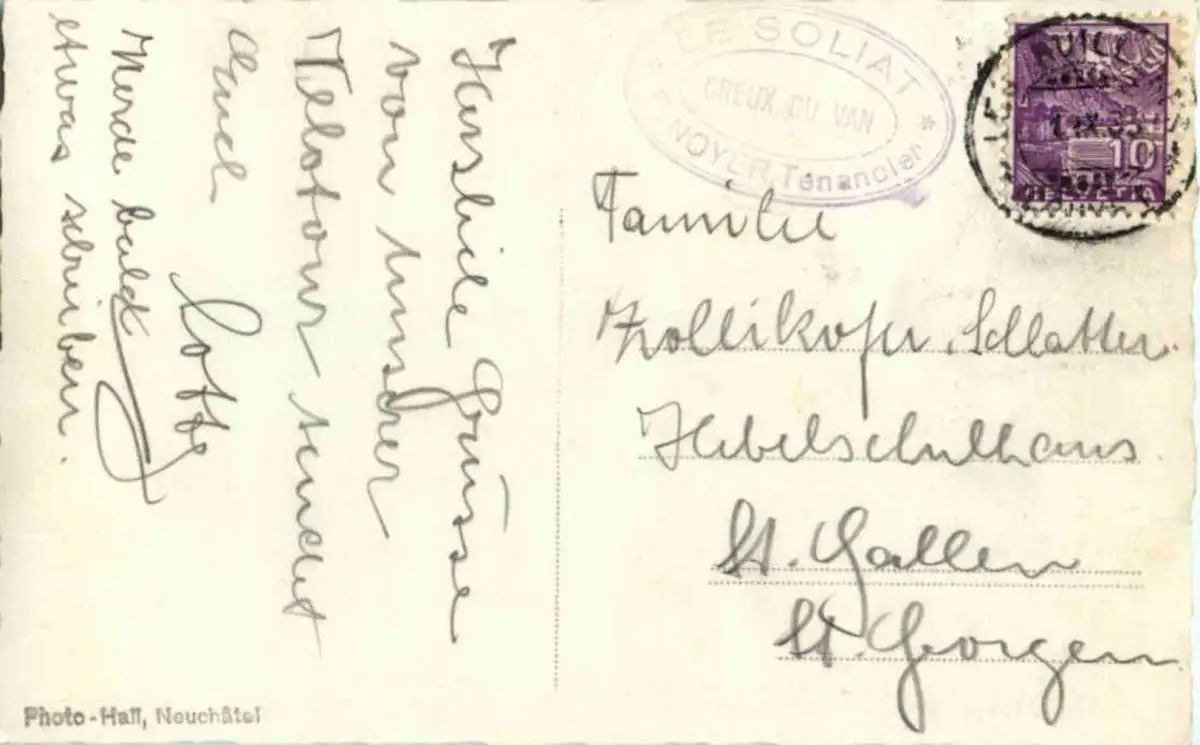 Herzliche Grüsse
von unserer
Velotour sendet
Euch
Lotte
Werde bald
etwas schreiben.
LE SOLIAT
CREUX DU VAN
NOYER, Tenancier
10
HELVETIA
Familie
Zollikofer-Schlatter.
Hebelschulhaus
St. Gallen
St. Georgen
Photo-Hall, Neuchâtel